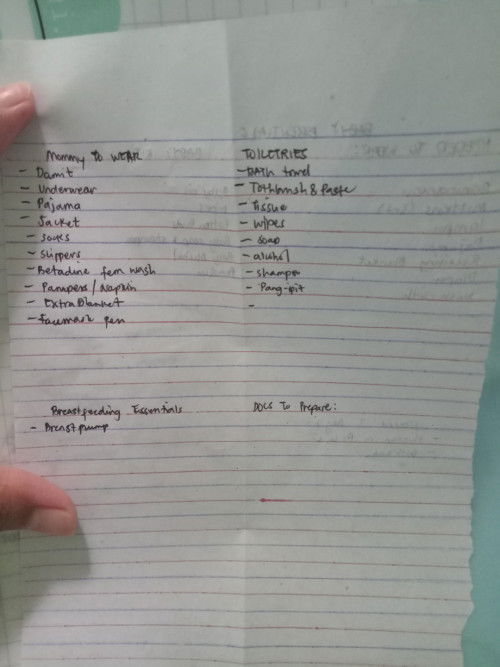 Mommy TO WEAR
- Damit
- Underwear
- Pajama
- Jacket
- socks
- Slippers
- Betadine fem wash
- Pampers / Napkin
- Extra Blanket
- Facemask
TOILETRIES
- BATH towel
- Tothbrush & Paste
- Tissue
- Wipes
- Soap
- alcohol
- shampoo
- Pang-pit
-
Breastfeeding Essentials
- Breastpump
DOCS To Prepare: